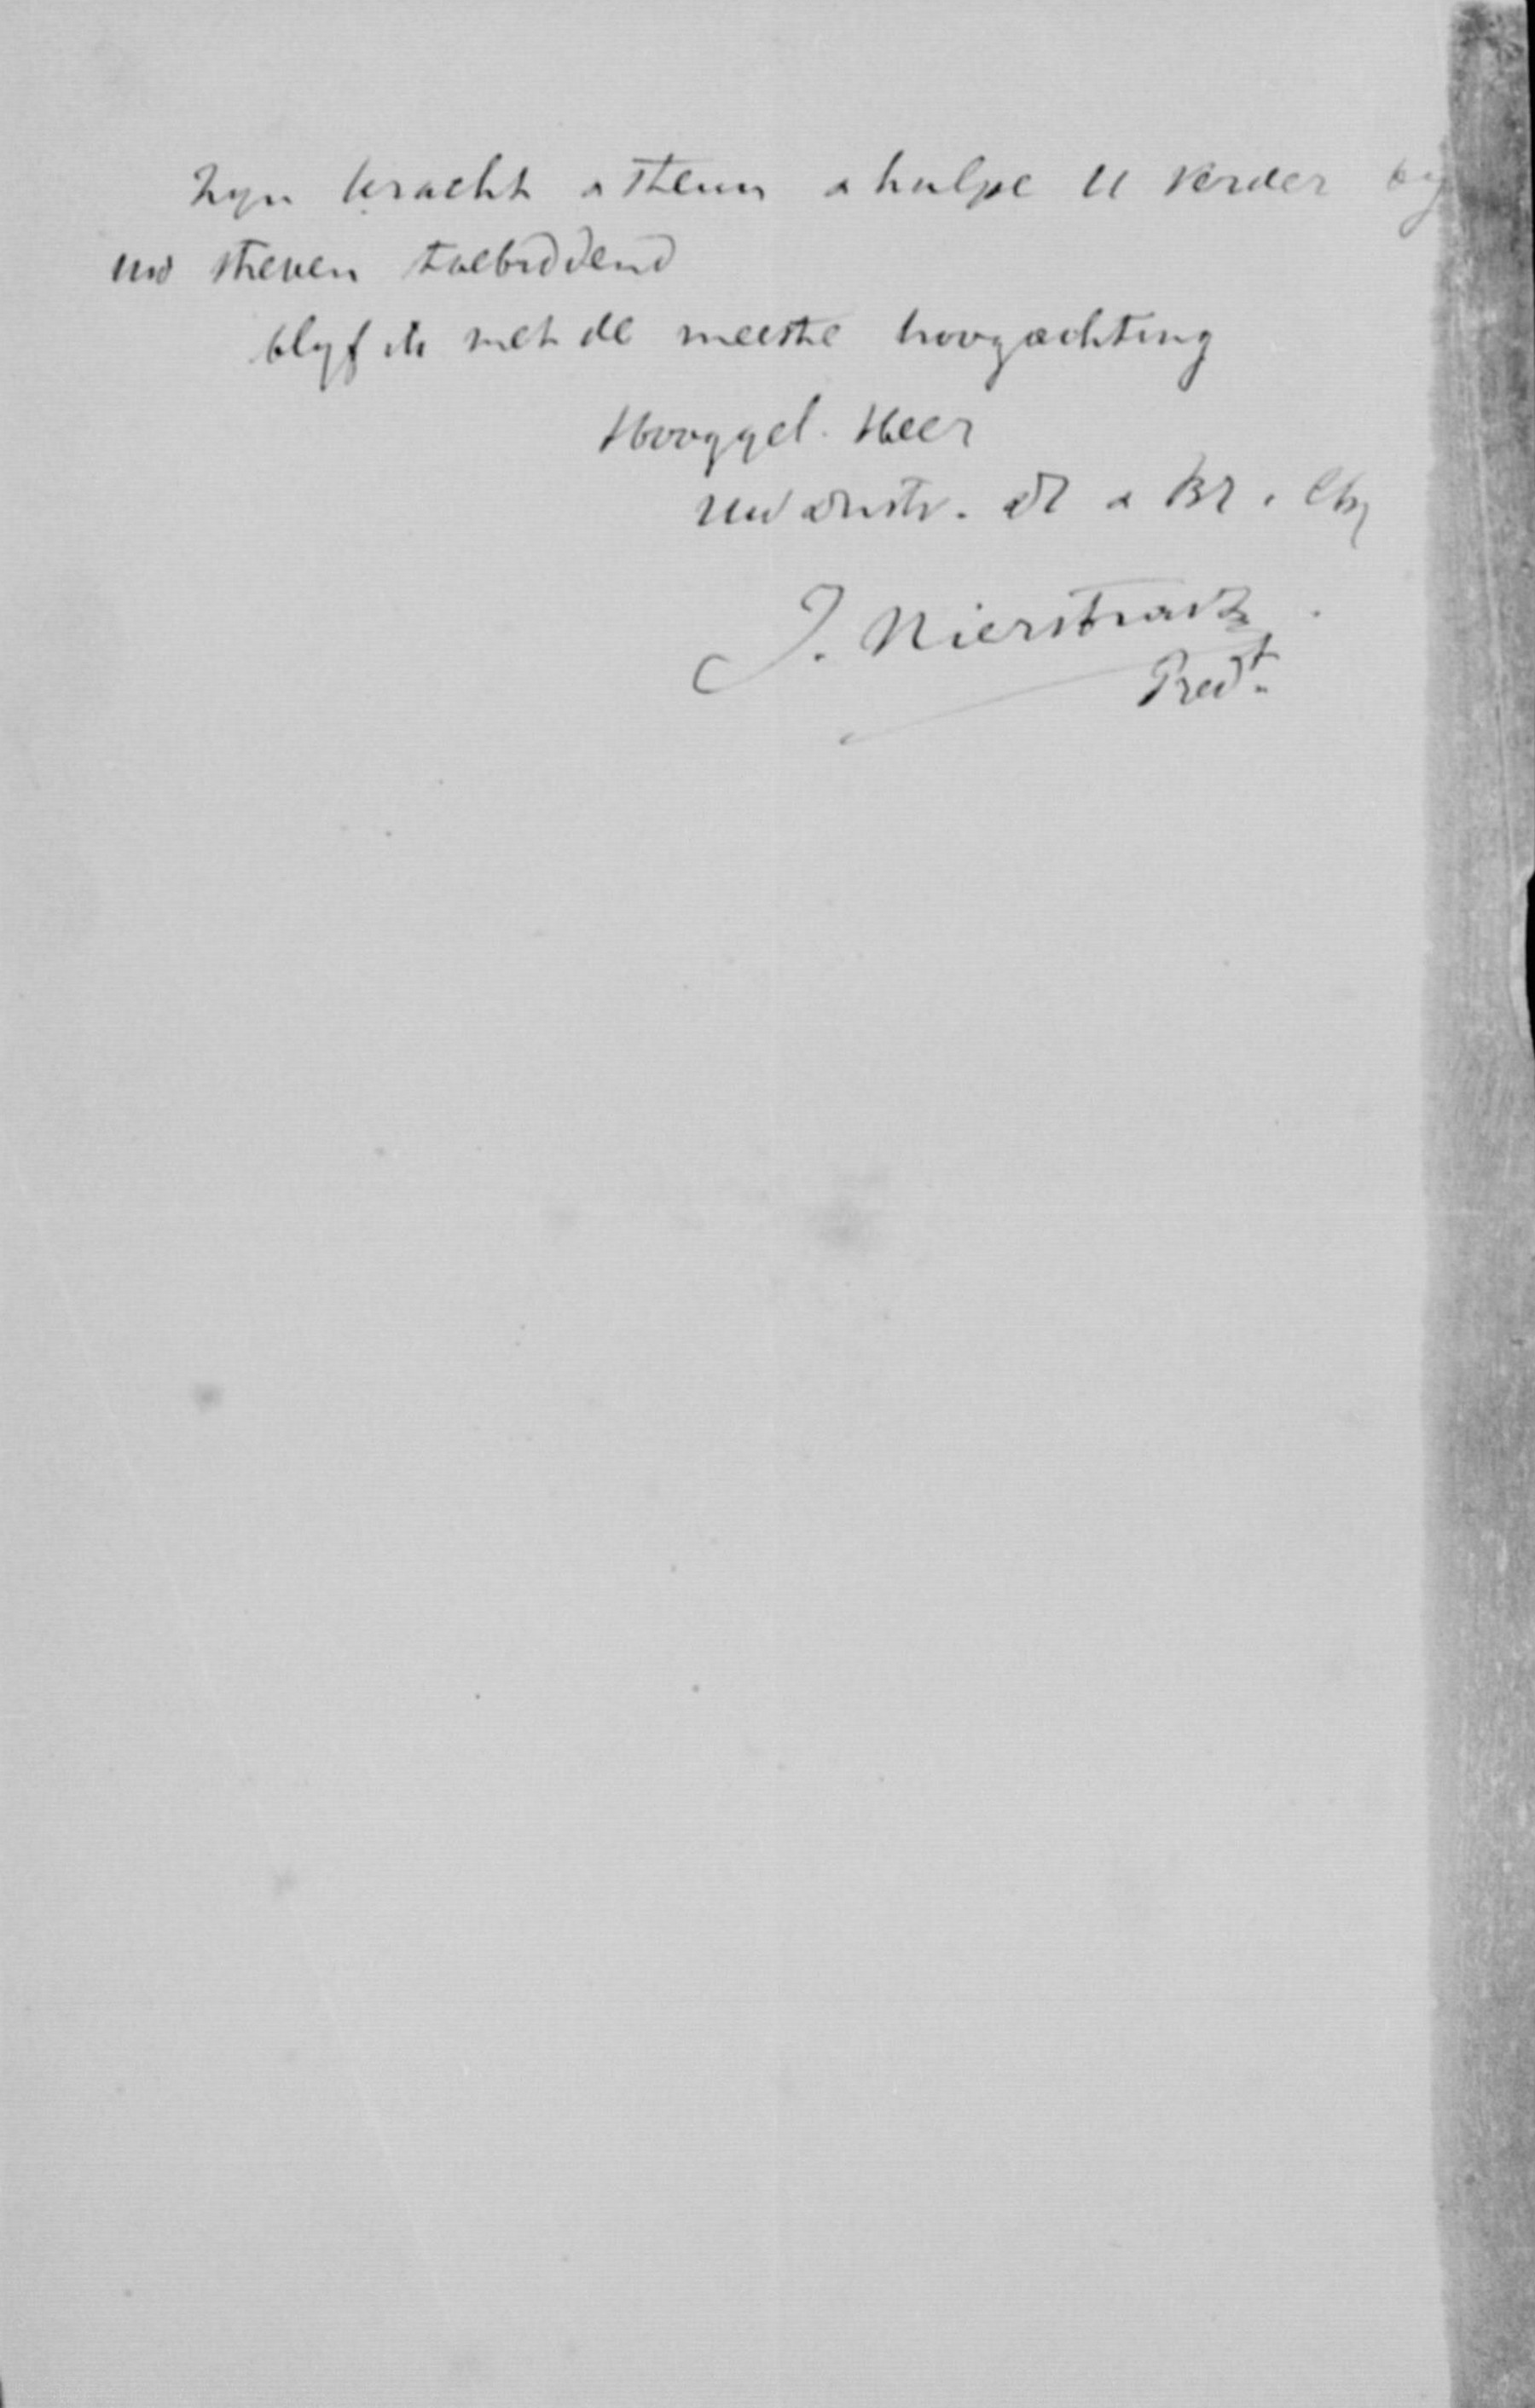 Zyn kracht & steun & hulpe U verder by
uw streven toebiddend
blyf ik met de meeste hoogachting
Hooggel. Heer
Uw dnstv. dr & Br. i Chr
J. Nierstrasz.
Predt.